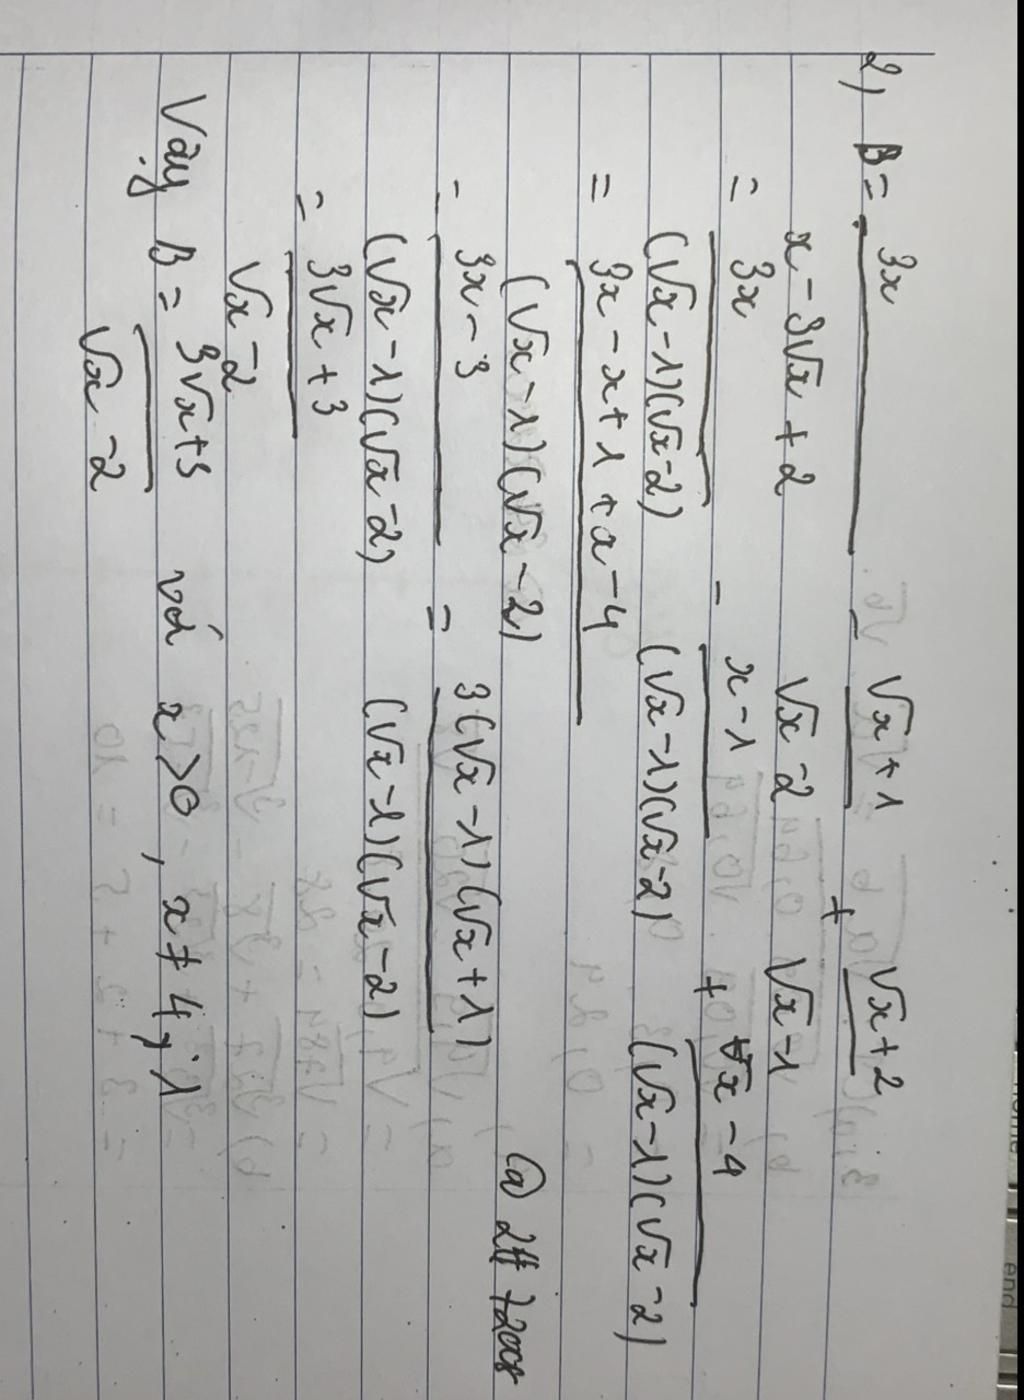 2) B = 3x / (x - 3√x + 2) - (√x + 1) / (√x - 2) + (√x + 2) / (√x - 1)
= 3x / (√x - 1)(√x - 2) - (x - 1) / (√x - 1)(√x - 2) + (x - 4) / (√x - 1)(√x - 2)
= (3x - x + 1 + x - 4) / (√x - 1)(√x - 2)
= (3x - 3) / (√x - 1)(√x - 2) = 3(√x - 1)(√x + 1) / (√x - 1)(√x - 2)
= (3√x + 3) / (√x - 2)
Vậy B = (3√x + 3) / (√x - 2) với x > 0, x ≠ 4; 1